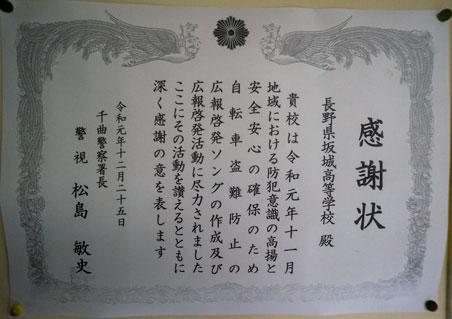 感謝状
長野県坂城高等学校 殿
貴校は令和元年十一月
地域における防犯意識の高揚と
安全安心の確保のため
自転車盗難防止の
広報啓発ソングの作成及び
広報啓発活動に尽力されました
ここにその活動を讃えるとともに
深く感謝の意を表します
令和元年十二月二十五日
千曲警察署長
警視 松島 敏史